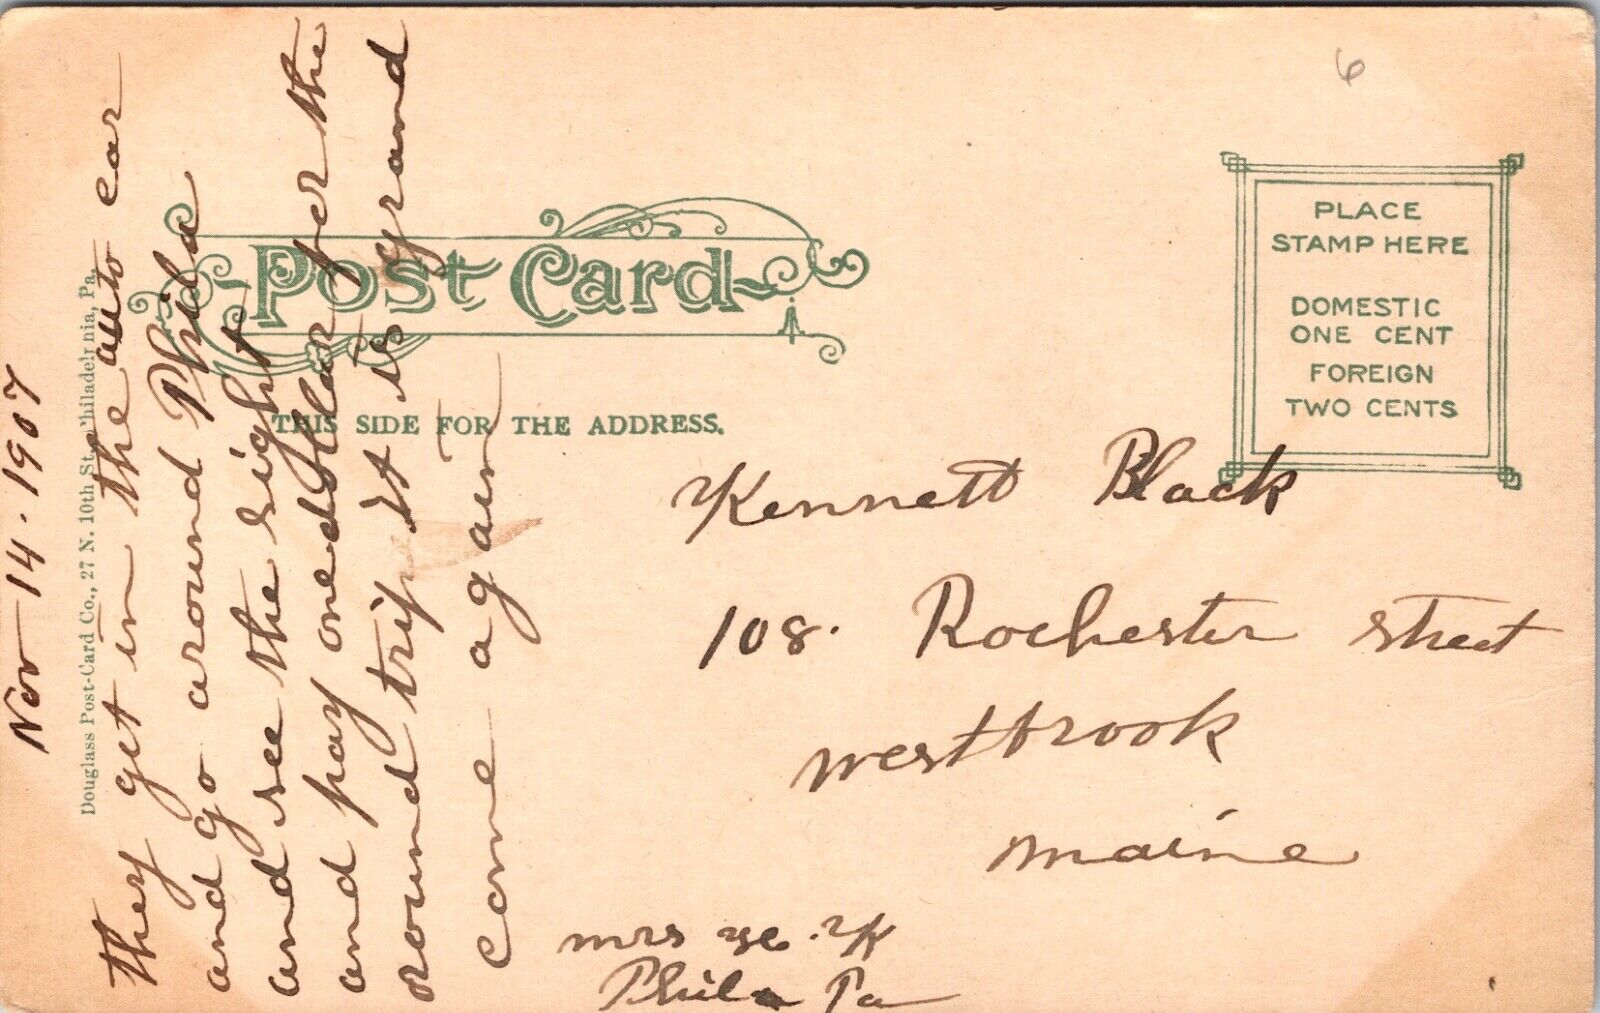 Nov 14. 1907
Douglass Post-Card Co., 27 N. 10th St., Philadelphia, Pa.
they get in the auto car
and go around Phila
and see the sight
and pay one dollar for the
round trip It is grand
come again
Post Card
THIS SIDE FOR THE ADDRESS.
6
PLACE
STAMP HERE
DOMESTIC
ONE CENT
FOREIGN
TWO CENTS
Kennett Black
108. Rochester street
Westbrook
Maine
Mrs K
Phila Pa